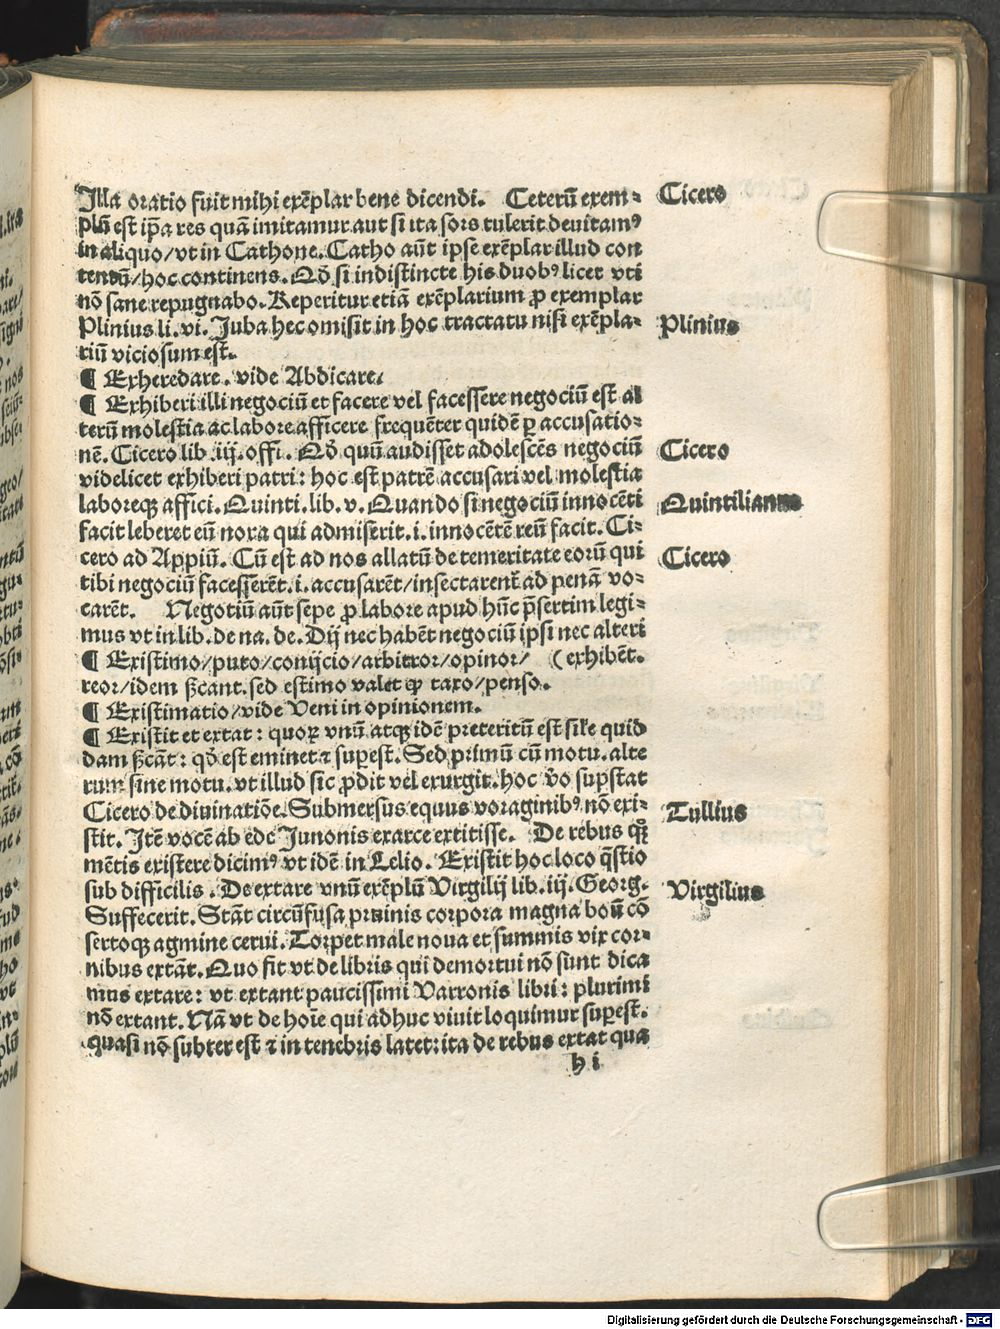 Illa oratio fuit mihi exēplar bene dicendi. Ceterū exem-
plū est ip̄a res quā imitamur aut si ita sors tulerit deuitamꝰ
in aliquo/vt in Cathone. Catho aūt ipse exēplar illud con
tentū/hoc continens. Qd̄ si indistincte his duobꝰ licet vti
nō sane repugnabo. Reperitur etiā exēplarium ꝓ exemplar
Plinius li. vi. Juba hec omisit in hoc tractatu nisi exēpla-
riū viciosum est.
¶ Exheredare. vide Abdicare/
¶ Exhiberi illi negociū et facere vel facessere negociū est al
terū molestia ac labore afficere frequēter quidē ꝑ accusatio-
nē. Cicero lib. iij. offi. Qd̄ quū audisset adolescēs negociū
videlicet exhiberi patri: hoc est patrē accusari vel molestia
laboreqꝫ affici. Quinti. lib. v. Quando si negociū innocēti
facit leberet eū nora qui admiserit. i. innocētē reū facit. Ci-
cero ad Appiū. Cū est ad nos allatū de temeritate eorū qui
tibi negociū facesserēt. i. accusarēt/insectarent̄ ad penā vo-
carēt. Negotiū aūt sepe ꝓ labore apud hūc p̄sertim legi-
mus vt in lib. de na. de. Dij nec habēt negociū ipsi nec alteri
¶ Existimo/puto/conijcio/arbitror/opinor/ (exhibēt.
reor/idem ẞcant. sed estimo valet ꝙ taxo/penso.
¶ Existimatio/vide Veni in opinionem.
¶ Existit et extat: quoꝝ vnū atqꝫ idē preteritū est sile quid
dam ẞcāt: qd̄ est eminet ⁊ suꝑest. Sed primū cū motu. alte
rum sine motu. vt illud sic ꝓdit vel exurgit. hoc v̄o suꝑstat
Cicero de diuinatiōe. Submersus equus voraginibꝰ nō exi-
stit. Itē vocē ab ede Junonis ex arce extitisse. De rebus qꝫ̄
mētis existere dicimꝰ vt idē in Lelio. Existit hoc loco q̄stio
sub difficilis. De extare vnū exēplū Virgilij lib. iij. Georg.
Suffecerit. Stāt circūfusa pruinis corpora magna boū cō
sertoqꝫ agmine cerui. Torpet male noua et summis vix cor-
nibus extāt. Quo fit vt de libris qui demortui nō sunt dica
mus extare: vt extant paucissimi Varronis libri: plurimi
nō extant. Nā vt de hoīe qui adhuc viuit loquimur suꝑest.
quasi nō subter est ⁊ in tenebris latet: ita de rebus extat qua
h i
Cicero
Plinius
Cicero
Quintilianus
Cicero
Tullius
Virgilius
Digitalisierung gefördert durch die Deutsche Forschungsgemeinschaft - DFG